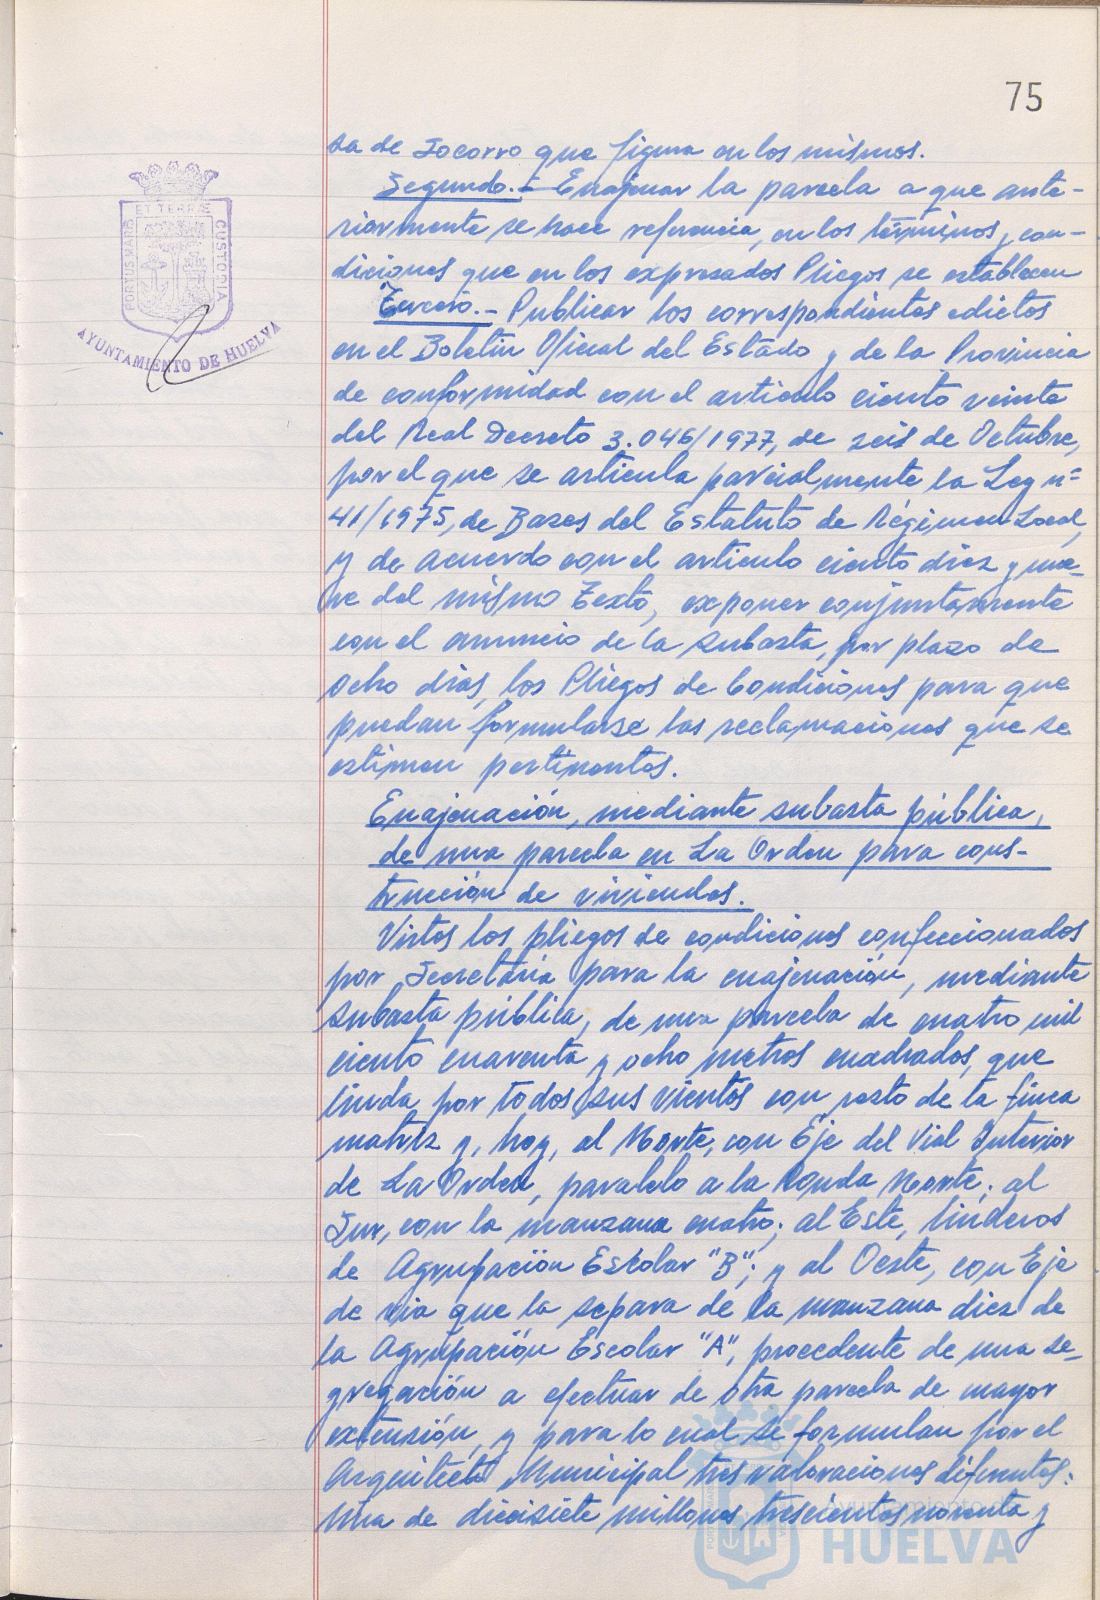 75
PORTUS MARIS ET TERRÆ CUSTODIA
AYUNTAMIENTO DE HUELVA
sa de Socorro que figura en los mismos.
Segundo.- Enajenar la parcela a que ante-
riormente se hace referencia, en los términos y con-
diciones que en los expresados Pliegos se establecen
Tercero.- Publicar los correspondientes edictos
en el Boletín Oficial del Estado y de la Provincia
de conformidad con el artículo ciento veinte
del Real Decreto 3.046/1977, de seis de Octubre,
por el que se articula parcialmente la Ley nº
41/1975, de Bases del Estatuto de Régimen Local,
y de acuerdo con el artículo ciento diez y nue-
ve del mismo Texto, exponer conjuntamente
con el anuncio de la subasta, por plazo de
ocho días, los Pliegos de Condiciones para que
puedan formularse las reclamaciones que se
estimen pertinentes.
Enajenación, mediante subasta pública,
de una parcela en La Orden para cons-
trucción de viviendas.
Vistos los pliegos de condiciones confeccionados
por Secretaría para la enajenación, mediante
subasta pública, de una parcela de cuatro mil
ciento cuarenta y ocho metros cuadrados, que
linda por todos sus vientos con resto de la finca
matriz y, hoy, al Norte, con Eje del Vial Interior
de La Orden, paralelo a la Ronda Norte; al
Sur, con la manzana cuatro; al Este, linderos
de Agrupación Escolar "B"; y al Oeste, con Eje
de vía que la separa de la manzana diez de
la Agrupación Escolar "A", procedente de una se-
gregación a efectuar de otra parcela de mayor
extensión, y para lo cual se formulan por el
Arquitecto Municipal tres valoraciones diferentes:
Una de diecisiete millones trescientos noventa y
Ayuntamiento de
HUELVA